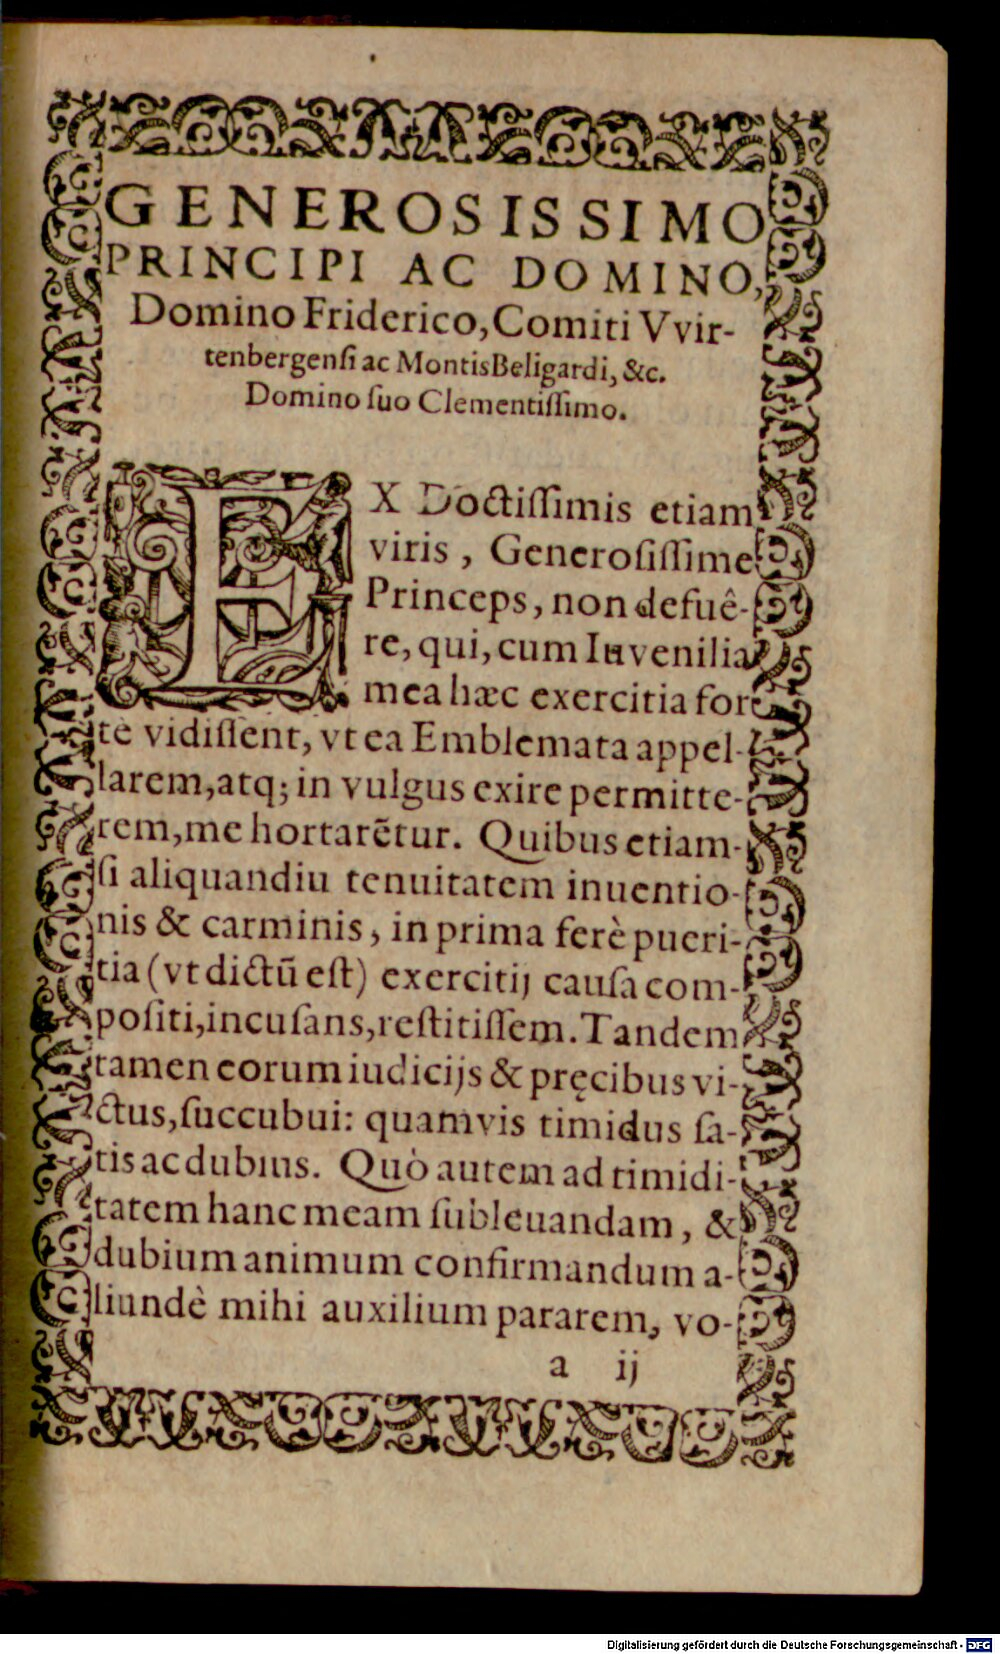 GENEROSISSIMO
PRINCIPI AC DOMINO,
Domino Friderico, Comiti Vvir-
tenbergenſi ac MontisBeligardi, &c.
Domino ſuo Clementiſſimo.
EX Doctiſſimis etiam
viris, Generoſiſſime
Princeps, non defuê-
re, qui, cum Iuvenilia
mea hæc exercitia for
tè vidiſſent, vt ea Emblemata appel-
larem, atq; in vulgus exire permitte-
rem, me hortarẽtur. Quibus etiam-
ſi aliquandiu tenuitatem inuentio-
nis & carminis, in prima ferè pueri-
tia (vt dictũ eſt) exercitij cauſa com-
poſiti, incuſans, reſtitiſſem. Tandem
tamen eorum iudicijs & pręcibus vi-
ctus, ſuccubui: quamvis timidus ſa-
tis ac dubius. Quò autem ad timidi-
tatem hanc meam ſubleuandam, &
dubium animum confirmandum a-
liundè mihi auxilium pararem, vo-
a ij
Digitalisierung gefördert durch die Deutsche Forschungsgemeinschaft - DFG